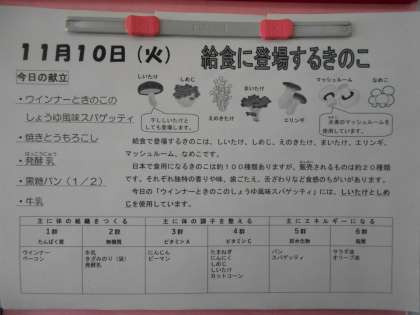 11月10日（火）
給食に登場するきのこ
今日の献立
・ウインナーときのこの
しょうゆ風味スパゲッティ
・焼きとうもろこし
はっこうにゅう
・発酵乳
・黒糖パン（1／2）
・牛乳
しいたけ
しめじ
えのきたけ
まいたけ
エリンギ
マッシュルーム
なめこ
干ししいたけと
しても登場します。
マッシュルームを
使用しています。
給食で登場するきのこは、しいたけ、しめじ、えのきたけ、まいたけ、エリンギ、
マッシュルーム、なめこです。
日本で食用になるきのこは約100種類ありますが、販売されるものは約20種類
です。それぞれ独特の香りや味、歯ごたえ、舌ざわりなど食感のちがいがあります。
今日の「ウインナーときのこのしょうゆ風味スパゲッティ」には、しいたけとしめ
じを使用しています。
主に体の組織をつくる 主に体の調子を整える 主にエネルギーになる
1群 2群 3群 4群 5群 6群
たんぱく質 無機質 ビタミンA ビタミンC 炭水化物 脂質
ウインナー 牛乳 にんじん たまねぎ パン サラダ油
ベーコン きざみのり（袋） ピーマン にんにく スパゲッティ オリーブ油
発酵乳 しめじ
しいたけ
カットコーン